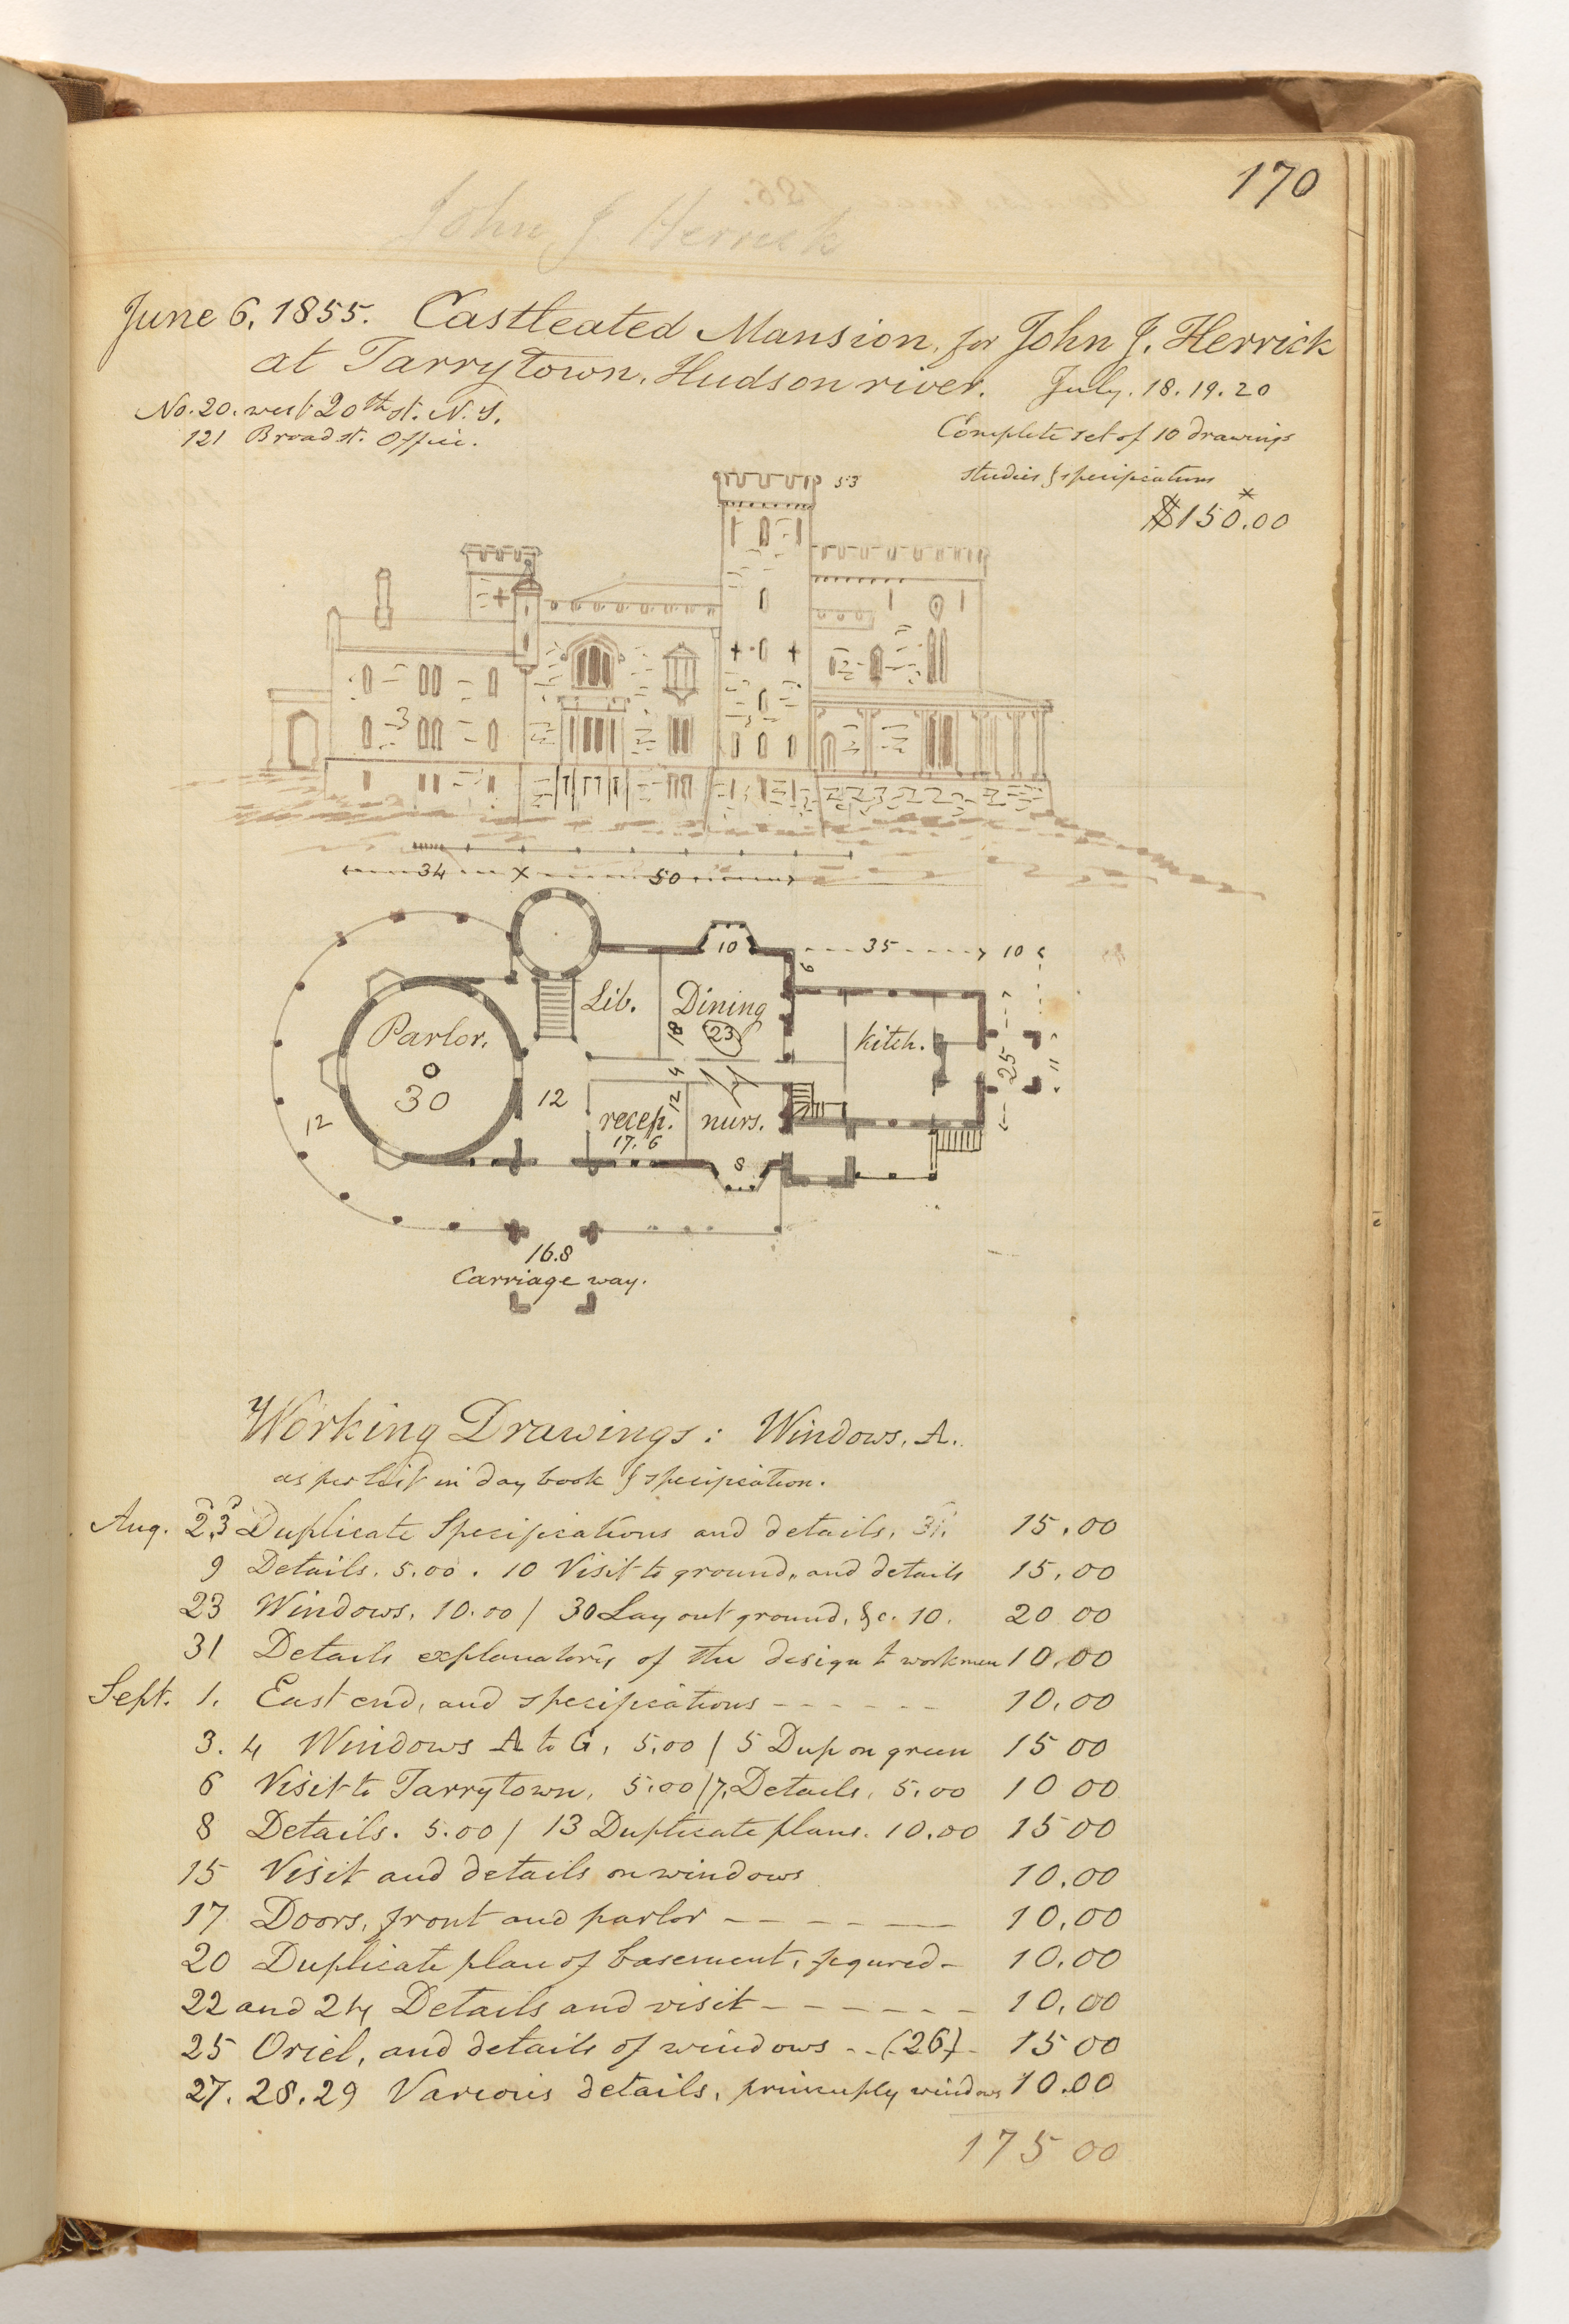 170
John J Herrick
June 6, 1855. Castleated Mansion, for John J. Herrick
at Tarrytown, Hudson river. July. 18. 19. 20
No. 20. west 20th st. N. Y.
121 Broad st. Office.
Complete set of 10 drawings
studies & specifications
$150.00
53
34 50
10 35 10
6
Lib. Dining
18 23
Parlor. kitch.
30 12 25 11
4
12 recep. 12 nurs.
17. 6
8
16.8
Carriage way.
Working Drawings: Windows. A.
as per list in day book & specification.
Aug. 2,3 Duplicate Specifications and details, 15.00
9 Details. 5.00. 10 Visit to ground, and details 15.00
23 Windows. 10.00 / 30 Lay out ground, &c. 10. 20 00
31 Details explanatory of the design to workmen 10.00
Sept. 1. East end, and specifications - - - - - - 10.00
3. 4 Windows A to G, 5.00 / 5 Dup on green 15 00
6 Visit to Tarrytown, 5.00 / 7. Details, 5.00 10 00
8 Details. 5.00 / 13 Duplicate plans. 10.00 15 00
15 Visit and details on windows 10.00
17 Doors, front and parlor - - - - - 10.00
20 Duplicate plan of basement, figured - 10.00
22 and 24 Details and visit - - - - - - 10.00
25 Oriel, and details of windows - - (26) - 15 00
27. 28. 29 Various details, windows 10.00
175 00